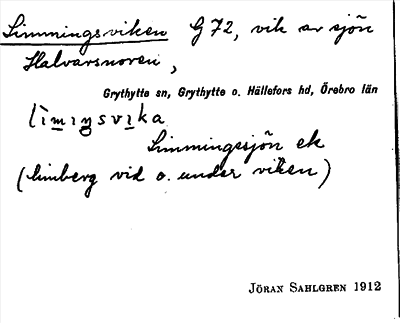 Limmingsviken G 72, vik av sjön
Halvarsnoren,
Grythytte sn, Grythytte o. Hällefors hd, Örebro län
lìmiŋsvika
Limmingssjön ek
(limberg vid o. under viken)
JÖRAN SAHLGREN 1912